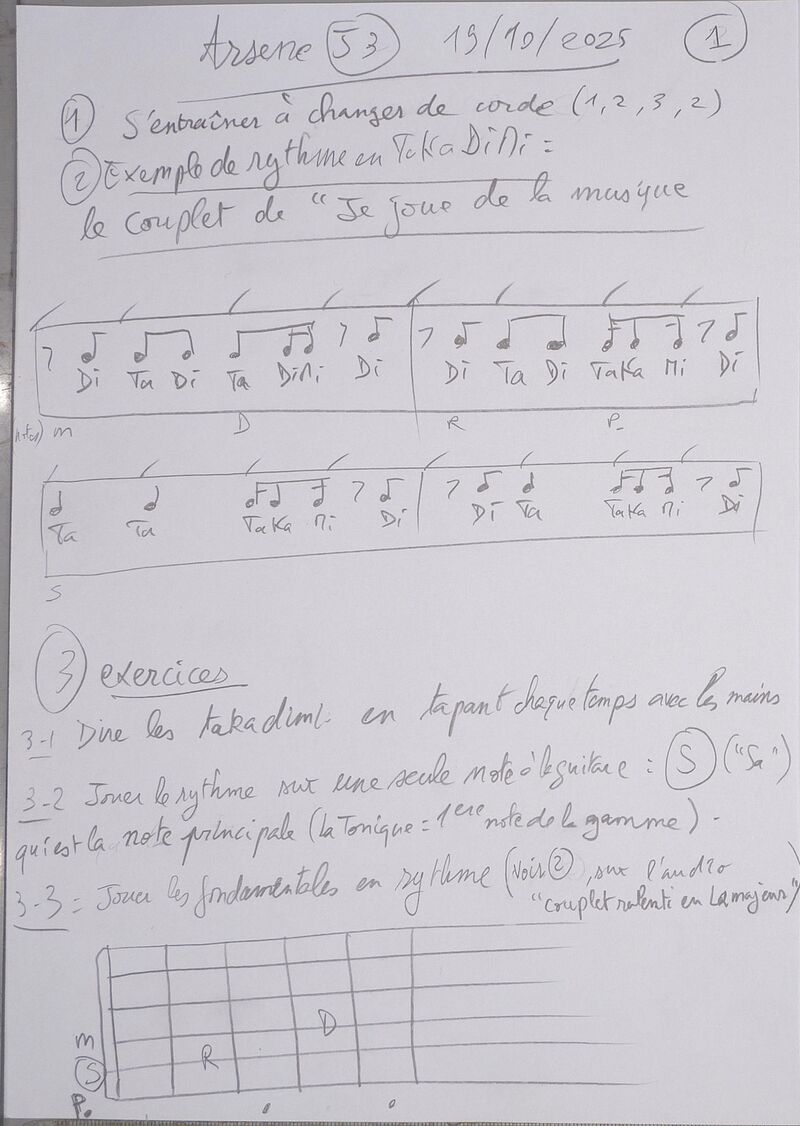 Arsene S3 19/10/2025 1
1 S'entraîner à changer de corde (1, 2, 3, 2)
2 Exemple de rythme en TaKaDiMi =
le couplet de "Je joue de la musique
Di Ta Di Ta DiMi Di Di Ta Di TaKa Mi Di
m D R P
Ta Ta TaKa Mi Di Di Ta TaKa Mi Di
S
3 exercices
3-1 Dire les takadimi en tapant chaque temps avec les mains
3-2 Jouer le rythme sur une seule note à la guitare : S ("Sa")
qui est la note principale (la Tonique = 1ere note de la gamme).
3-3 = Jouer les fondamentales en rythme (voir 2, sur l'audio
"couplet ralenti en La majeur")
m D
S R
P.